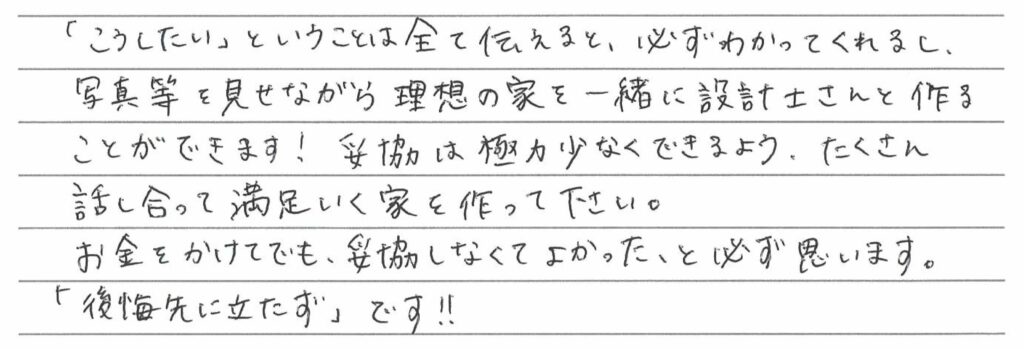 「こうしたい」ということは全て伝えると、必ずわかってくれるし、
写真等を見せながら理想の家を一緒に設計士さんと作る
ことができます! 妥協は極力少なくできるよう、たくさん
話し合って満足いく家を作って下さい。
お金をかけてでも、妥協しなくてよかった、と必ず思います。
「後悔先に立たず」です!!